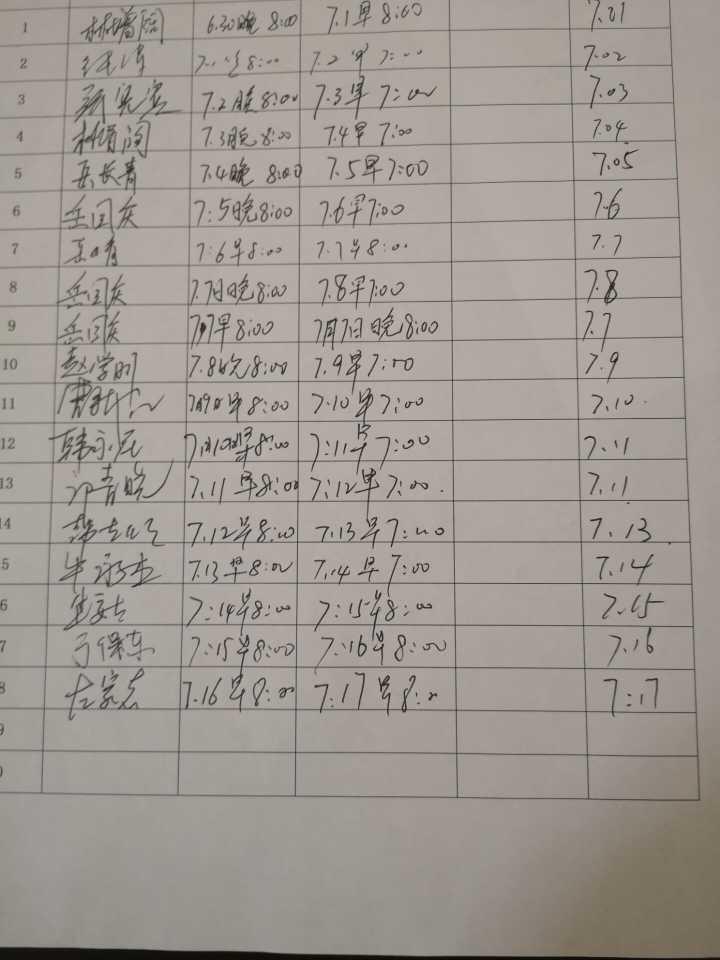 1 林增阔 6.30晚 8:00 7.1早 8:00 7.01
2 7.2早 7:00 7.02
3 7.2晚8:00 7.3早 7:00 7.03
4 林增阔 7.3晚 8:00 7.4早 7:00 7.04
5 岳长青 7.4晚 8:00 7.5早7:00 7.05
6 岳国庆 7:5晚8:00 7.6早7:00 7.6
7 7:6早8:00 7.7早8:00 7.7
8 岳国庆 7.7日晚8:00 7.8早7:00 7.8
9 岳国庆 7.7早8:00 7月7日晚8:00 7.7
10 赵学明 7.8晚8:00 7.9早7:00 7.9
11 早8:00 7.10早7:00 7.10.
12 韩永 早8:00 7:11早7:00 7.11
13 青晓 7.11早8:00 7:12早7:00. 7.11
14 7.12早8:00 7.13早7:00 7.13
5 牛永 7.13早8:00 7.14早7:00 7.14
6 7:14早8:00 7:15早8:00 7.15
7 保东 7:15早8:00 7.16早8:00 7.16
8 左宗志 7.16早8:00 7:17早8:00 7:17
9
0